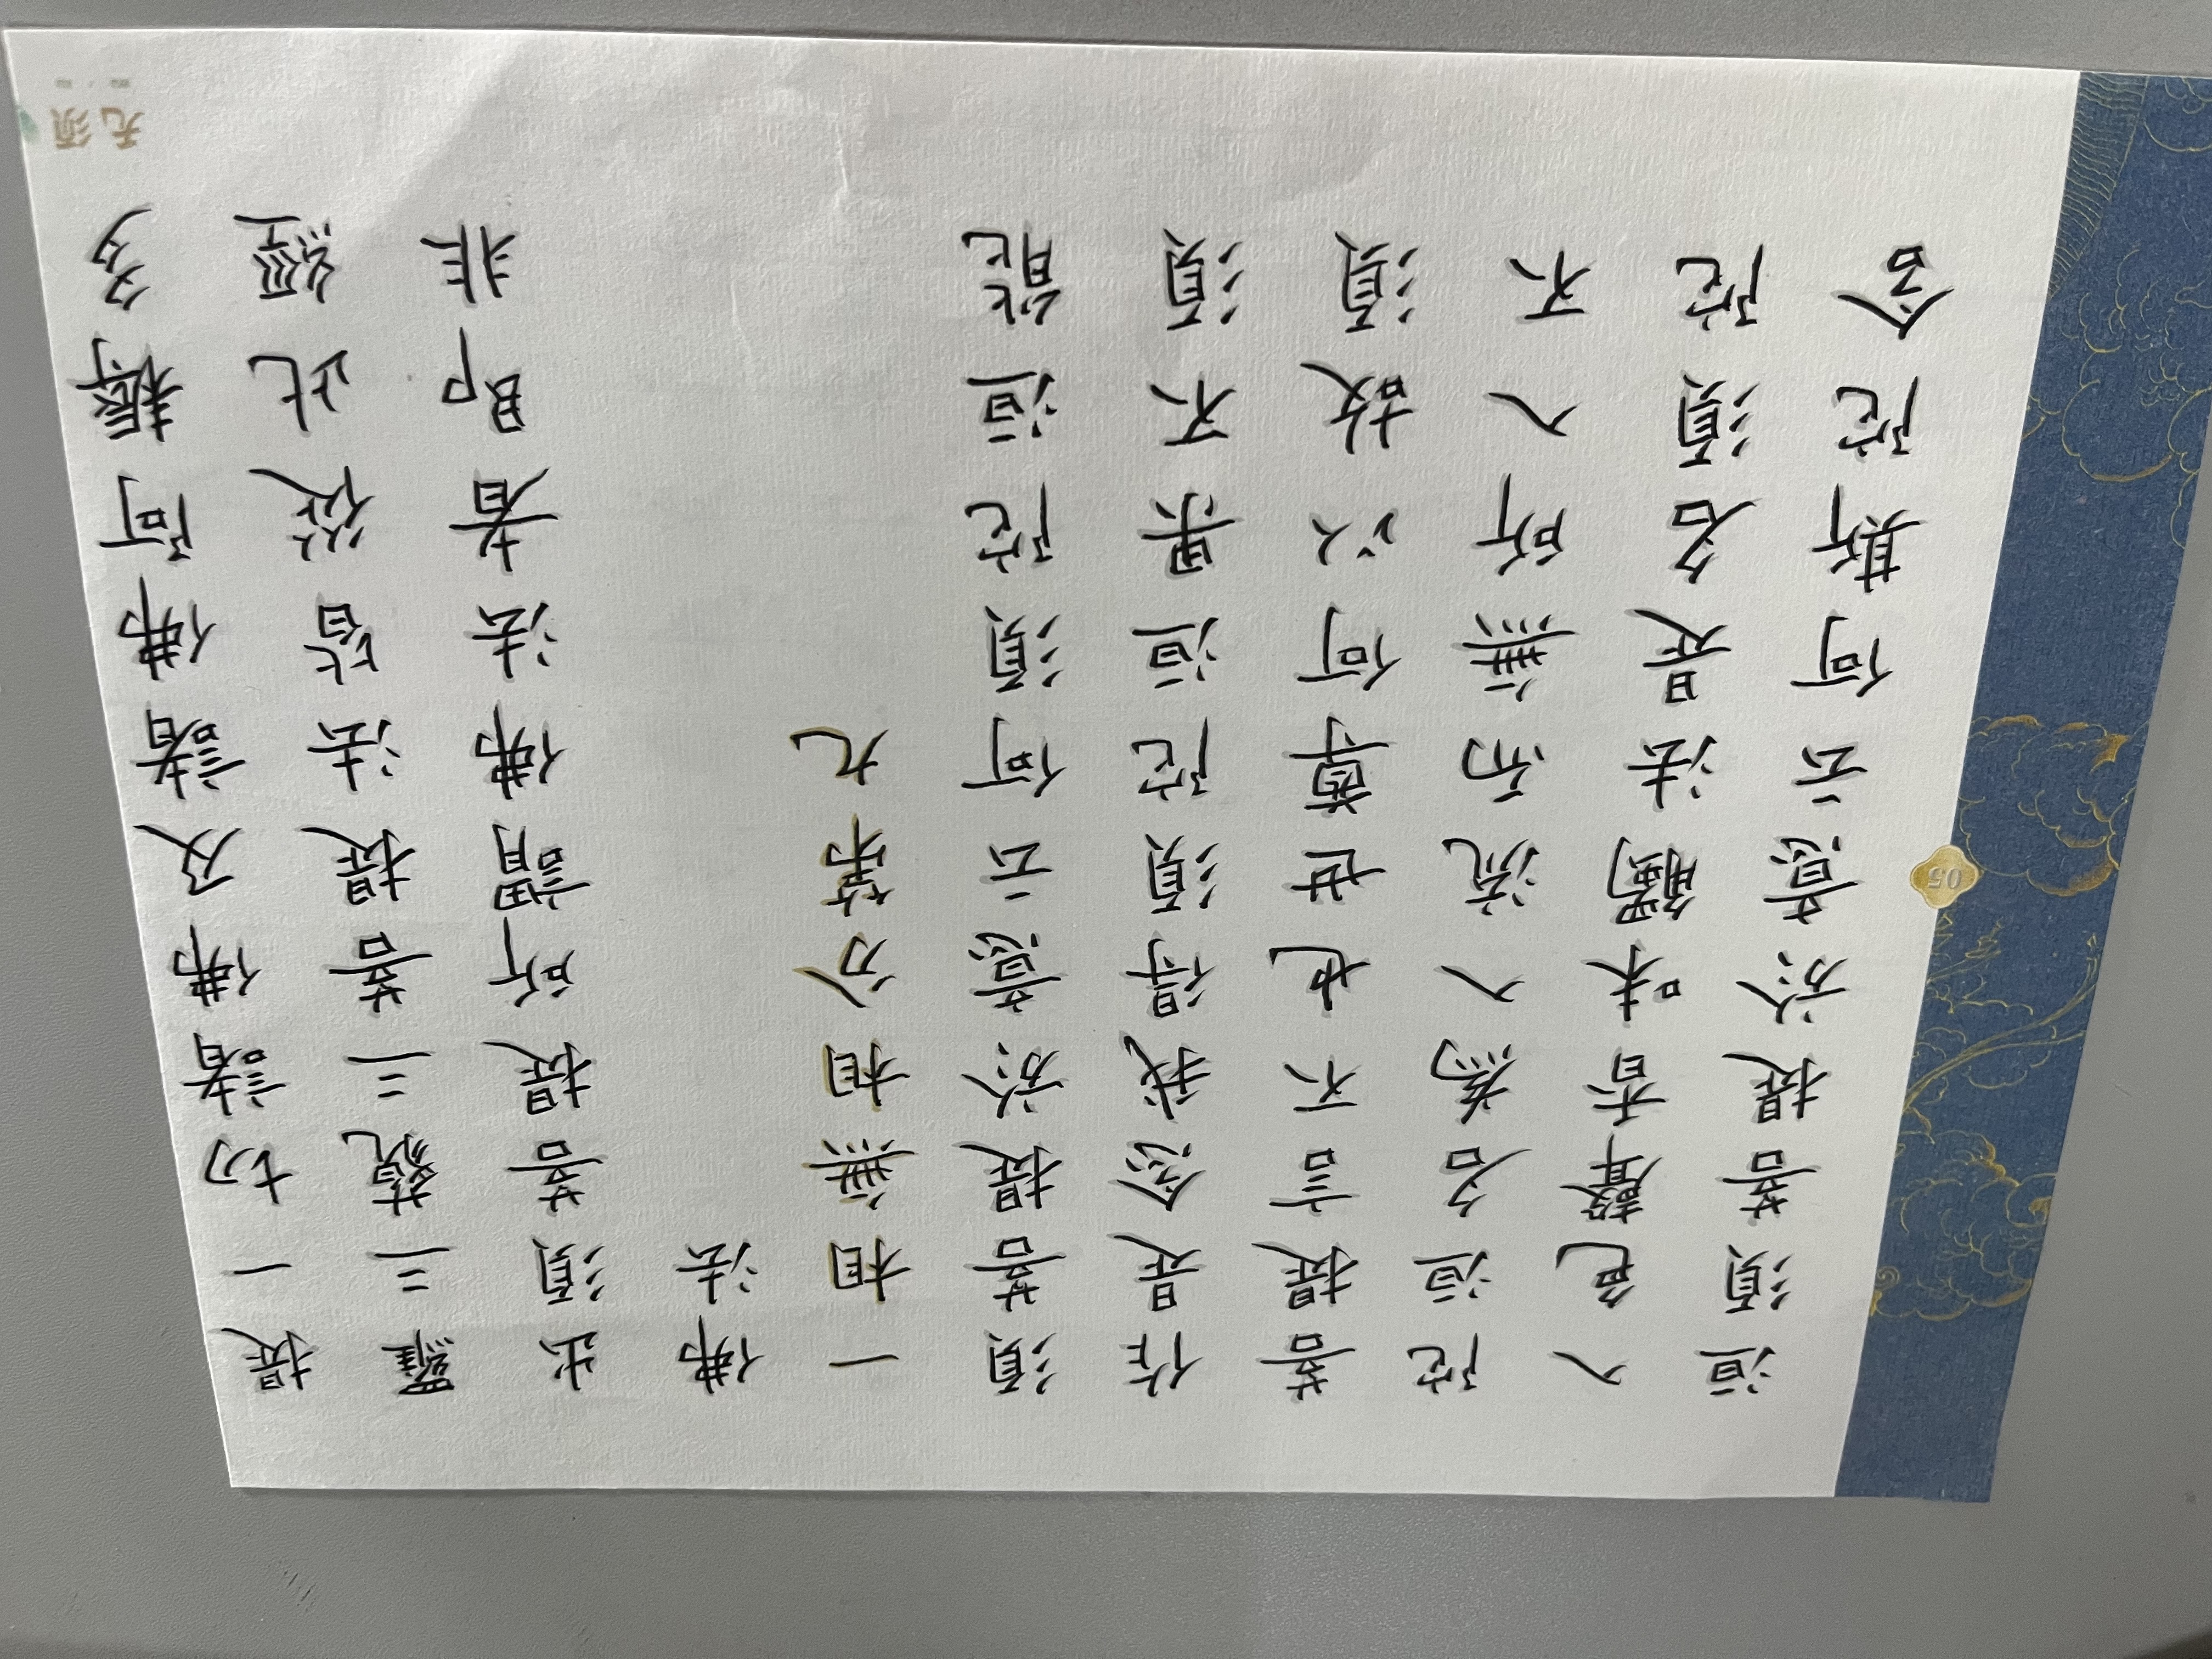 提一切諸佛及諸佛阿耨多
羅三藐三菩提法皆從此經
出須菩提所謂佛法者即非
佛法
一相無相分第九
須菩提於意云何須陀洹能
作是念我得須陀洹果不須
菩提言不也世尊何以故須
陀洹名為入流而無所入不
入色聲香味觸法是名須陀
洹須菩提於意云何斯陀含
05
无须